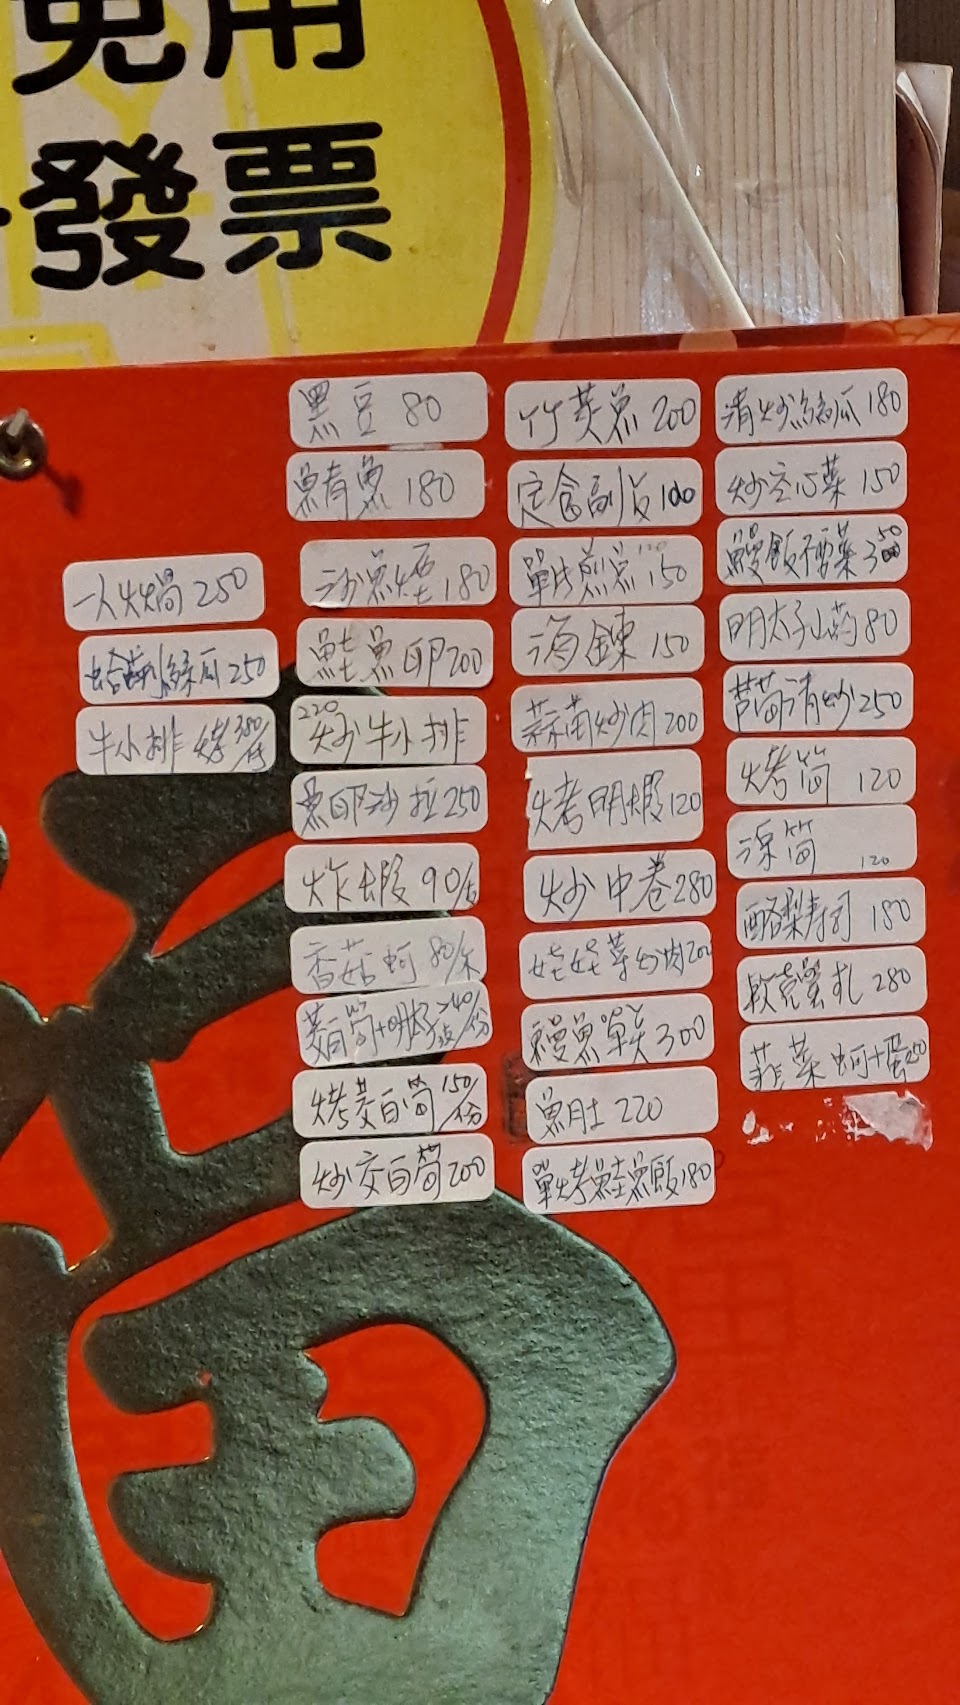 免用
發票
一人火鍋 250
蛤蜊絲瓜 250
牛小排 烤 380/份
黑豆 80
鯖魚 180
沙魚煙 180
鮭魚卵 200
炒牛小排 220
魚卵沙拉 250
炸蝦 90/支
香菇蚵 80/朵
茭白筍+明太子 240/份
烤茭白筍 150/份
炒交白筍 200
竹筴魚 200
定食副皆 100
單片煎魚 150
海鰊 150
蒜苗炒肉 200
烤明蝦 120
炒中卷 280
娃娃菜炒肉 200
鰻魚單夾 300
魚肚 220
單烤鮭魚飯 180
清炒絲瓜 180
炒空心菜 150
鰻飯不帶菜 350
明太子山药 80
蘆筍清炒 250
烤筍 120
涼筍 120
酪梨寿司 180
軟壳蟹 扎 280
韮菜蚵+蛋 250